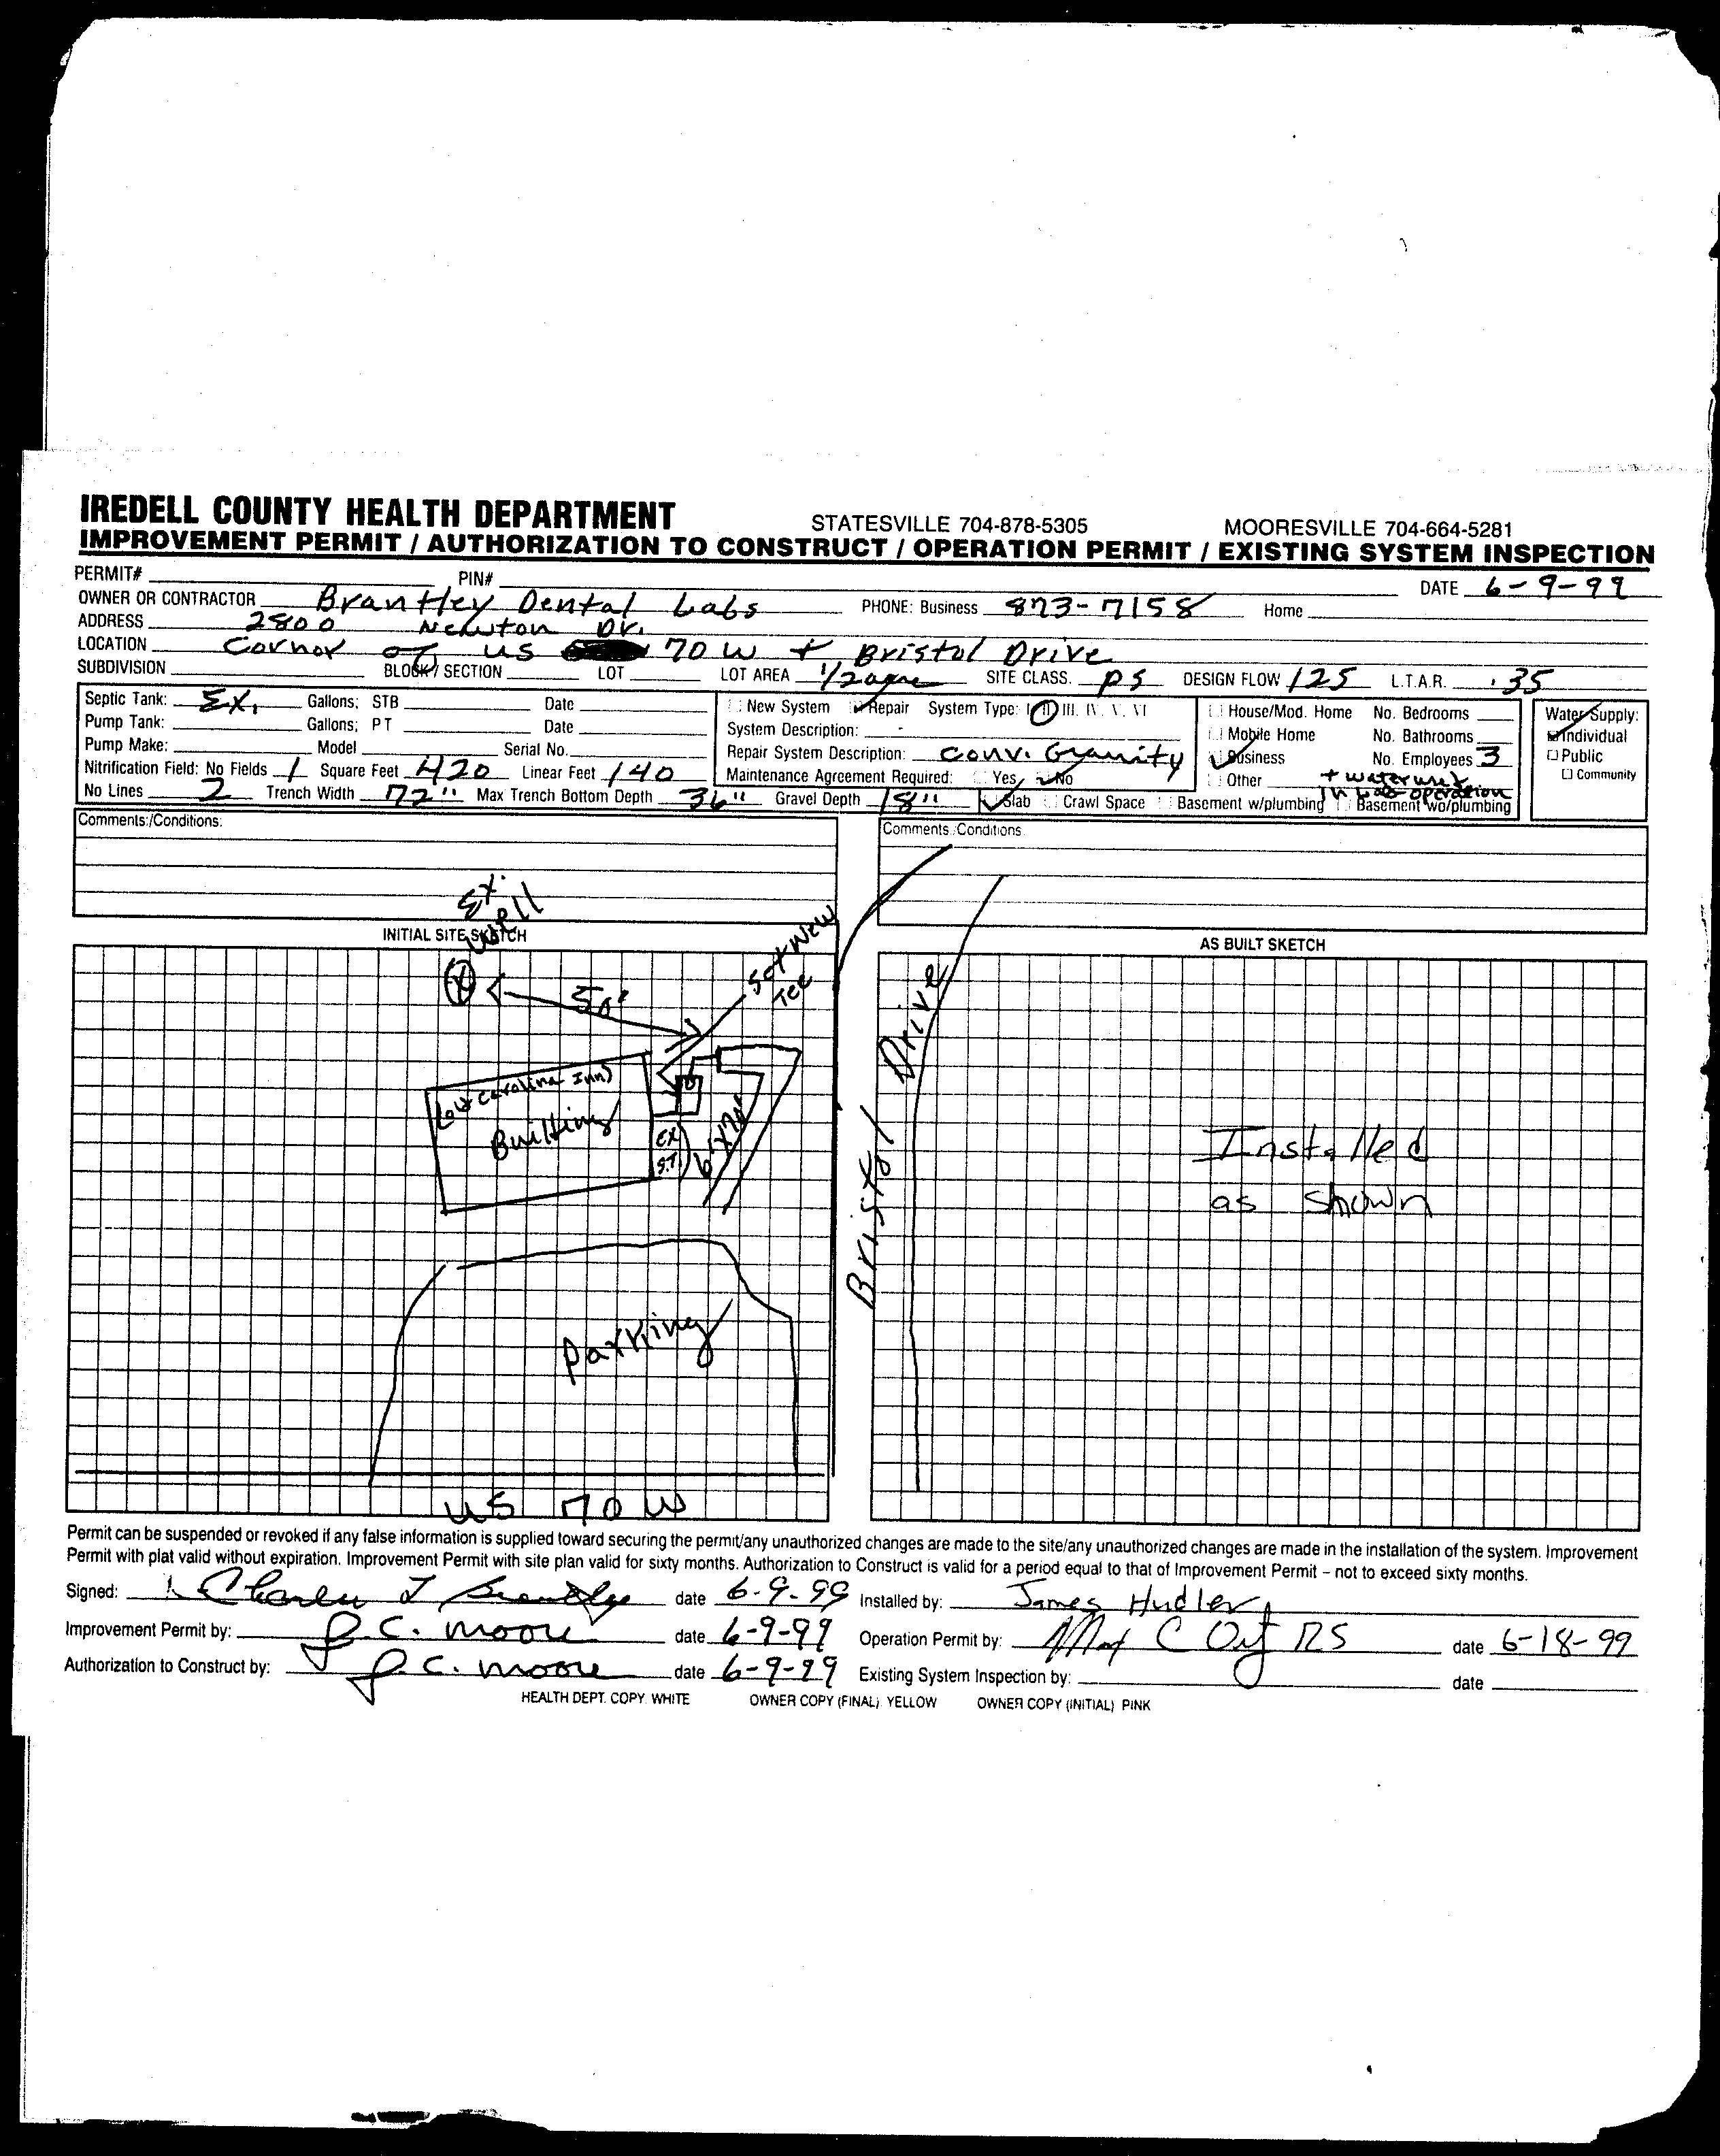 IREDELL COUNTY HEALTH DEPARTMENT STATESVILLE 704-878-5305 MOORESVILLE 704-664-5281
IMPROVEMENT PERMIT / AUTHORIZATION TO CONSTRUCT / OPERATION PERMIT / EXISTING SYSTEM INSPECTION
PERMIT# PIN# DATE 6-9-99
OWNER OR CONTRACTOR Brantley Dental Labs PHONE: Business 873-7158 Home
ADDRESS 2800 Newton Dr.
LOCATION Cornor of US 70 W + Bristol Drive
SUBDIVISION BLOCK / SECTION LOT LOT AREA 1/2 acre SITE CLASS. PS DESIGN FLOW 125 L.T.A.R. .35
Septic Tank: Ex. Gallons; STB Date
Pump Tank: Gallons; PT Date
Pump Make: Model Serial No.
Nitrification Field: No Fields 1 Square Feet 420 Linear Feet 140
No Lines 2 Trench Width 72" Max Trench Bottom Depth 36" Gravel Depth 18"
New System Repair System Type: I II III. IV. V. VI
System Description: -
Repair System Description: Conv. Gravity
Maintenance Agreement Required: Yes No
Slab Crawl Space Basement w/plumbing Basement wo/plumbing
House/Mod. Home No. Bedrooms
Mobile Home No. Bathrooms
Business No. Employees 3
Other + water use
in Lab operation
Water Supply:
Individual
Public
Community
Comments:/Conditions:
Comments:/Conditions
INITIAL SITE SKETCH
AS BUILT SKETCH
Ex.
Well
50'
Set New
Tee
Carolina Inn)
Building
(EX
S.T.)
6'x70'
Bristol Drive
Installed
as shown
Parking
US 70 W
Permit can be suspended or revoked if any false information is supplied toward securing the permit/any unauthorized changes are made to the site/any unauthorized changes are made in the installation of the system. Improvement
Permit with plat valid without expiration. Improvement Permit with site plan valid for sixty months. Authorization to Construct is valid for a period equal to that of Improvement Permit – not to exceed sixty months.
Signed: Charles T Brantley date 6-9-99 Installed by: James Hudler
Improvement Permit by: J.C. Moore date 6-9-99 Operation Permit by: RS date 6-18-99
Authorization to Construct by: J.C. Moore date 6-9-99 Existing System Inspection by: date
HEALTH DEPT. COPY WHITE OWNER COPY (FINAL) YELLOW OWNER COPY (INITIAL) PINK